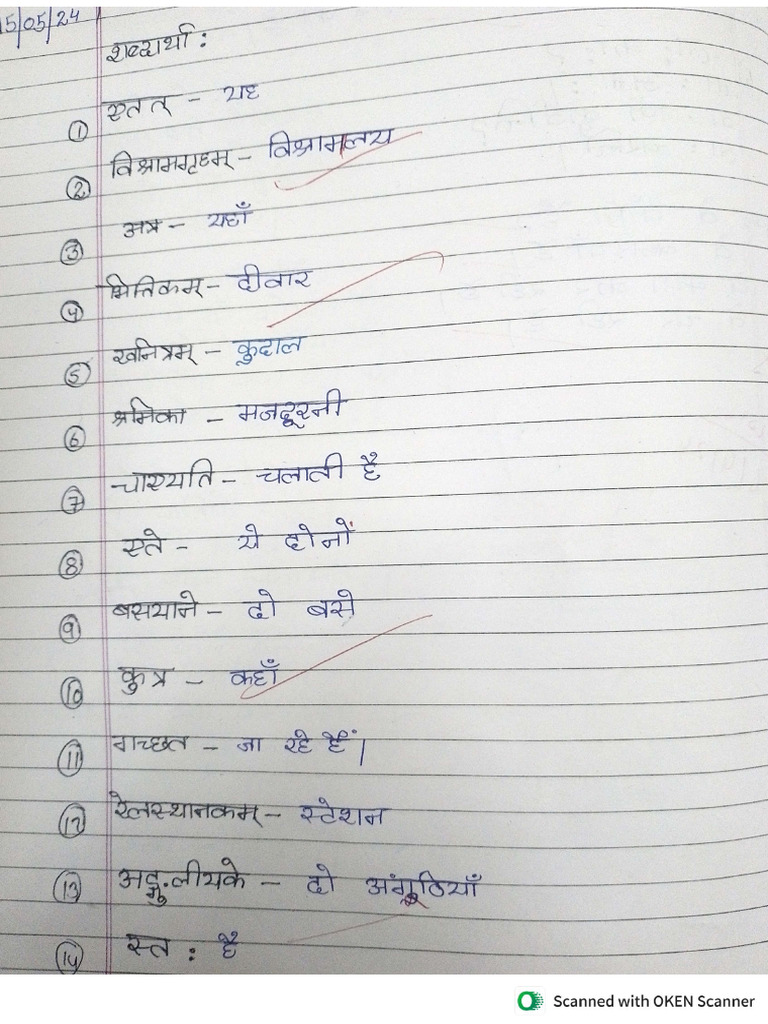 15/05/24
शब्दार्था :
① एतत् - यह
② विश्रामगृहम् - विश्रामलय
③ अत्र - यहाँ
④ भित्तिकम् - दीवार
⑤ खनित्रम् - कुदाल
⑥ श्रमिका - मजदूरनी
⑦ चालयति - चलाती है
⑧ एते - ये दोनों
⑨ बसयाने - दो बसे
⑩ कुत्र - कहाँ
⑪ गच्छत - जा रहे हैं।
⑫ रेलस्थानकम् - स्टेशन
⑬ अङ्गुलीयके - दो अंगूठियाँ
⑭ स्त : है
Scanned with OKEN Scanner